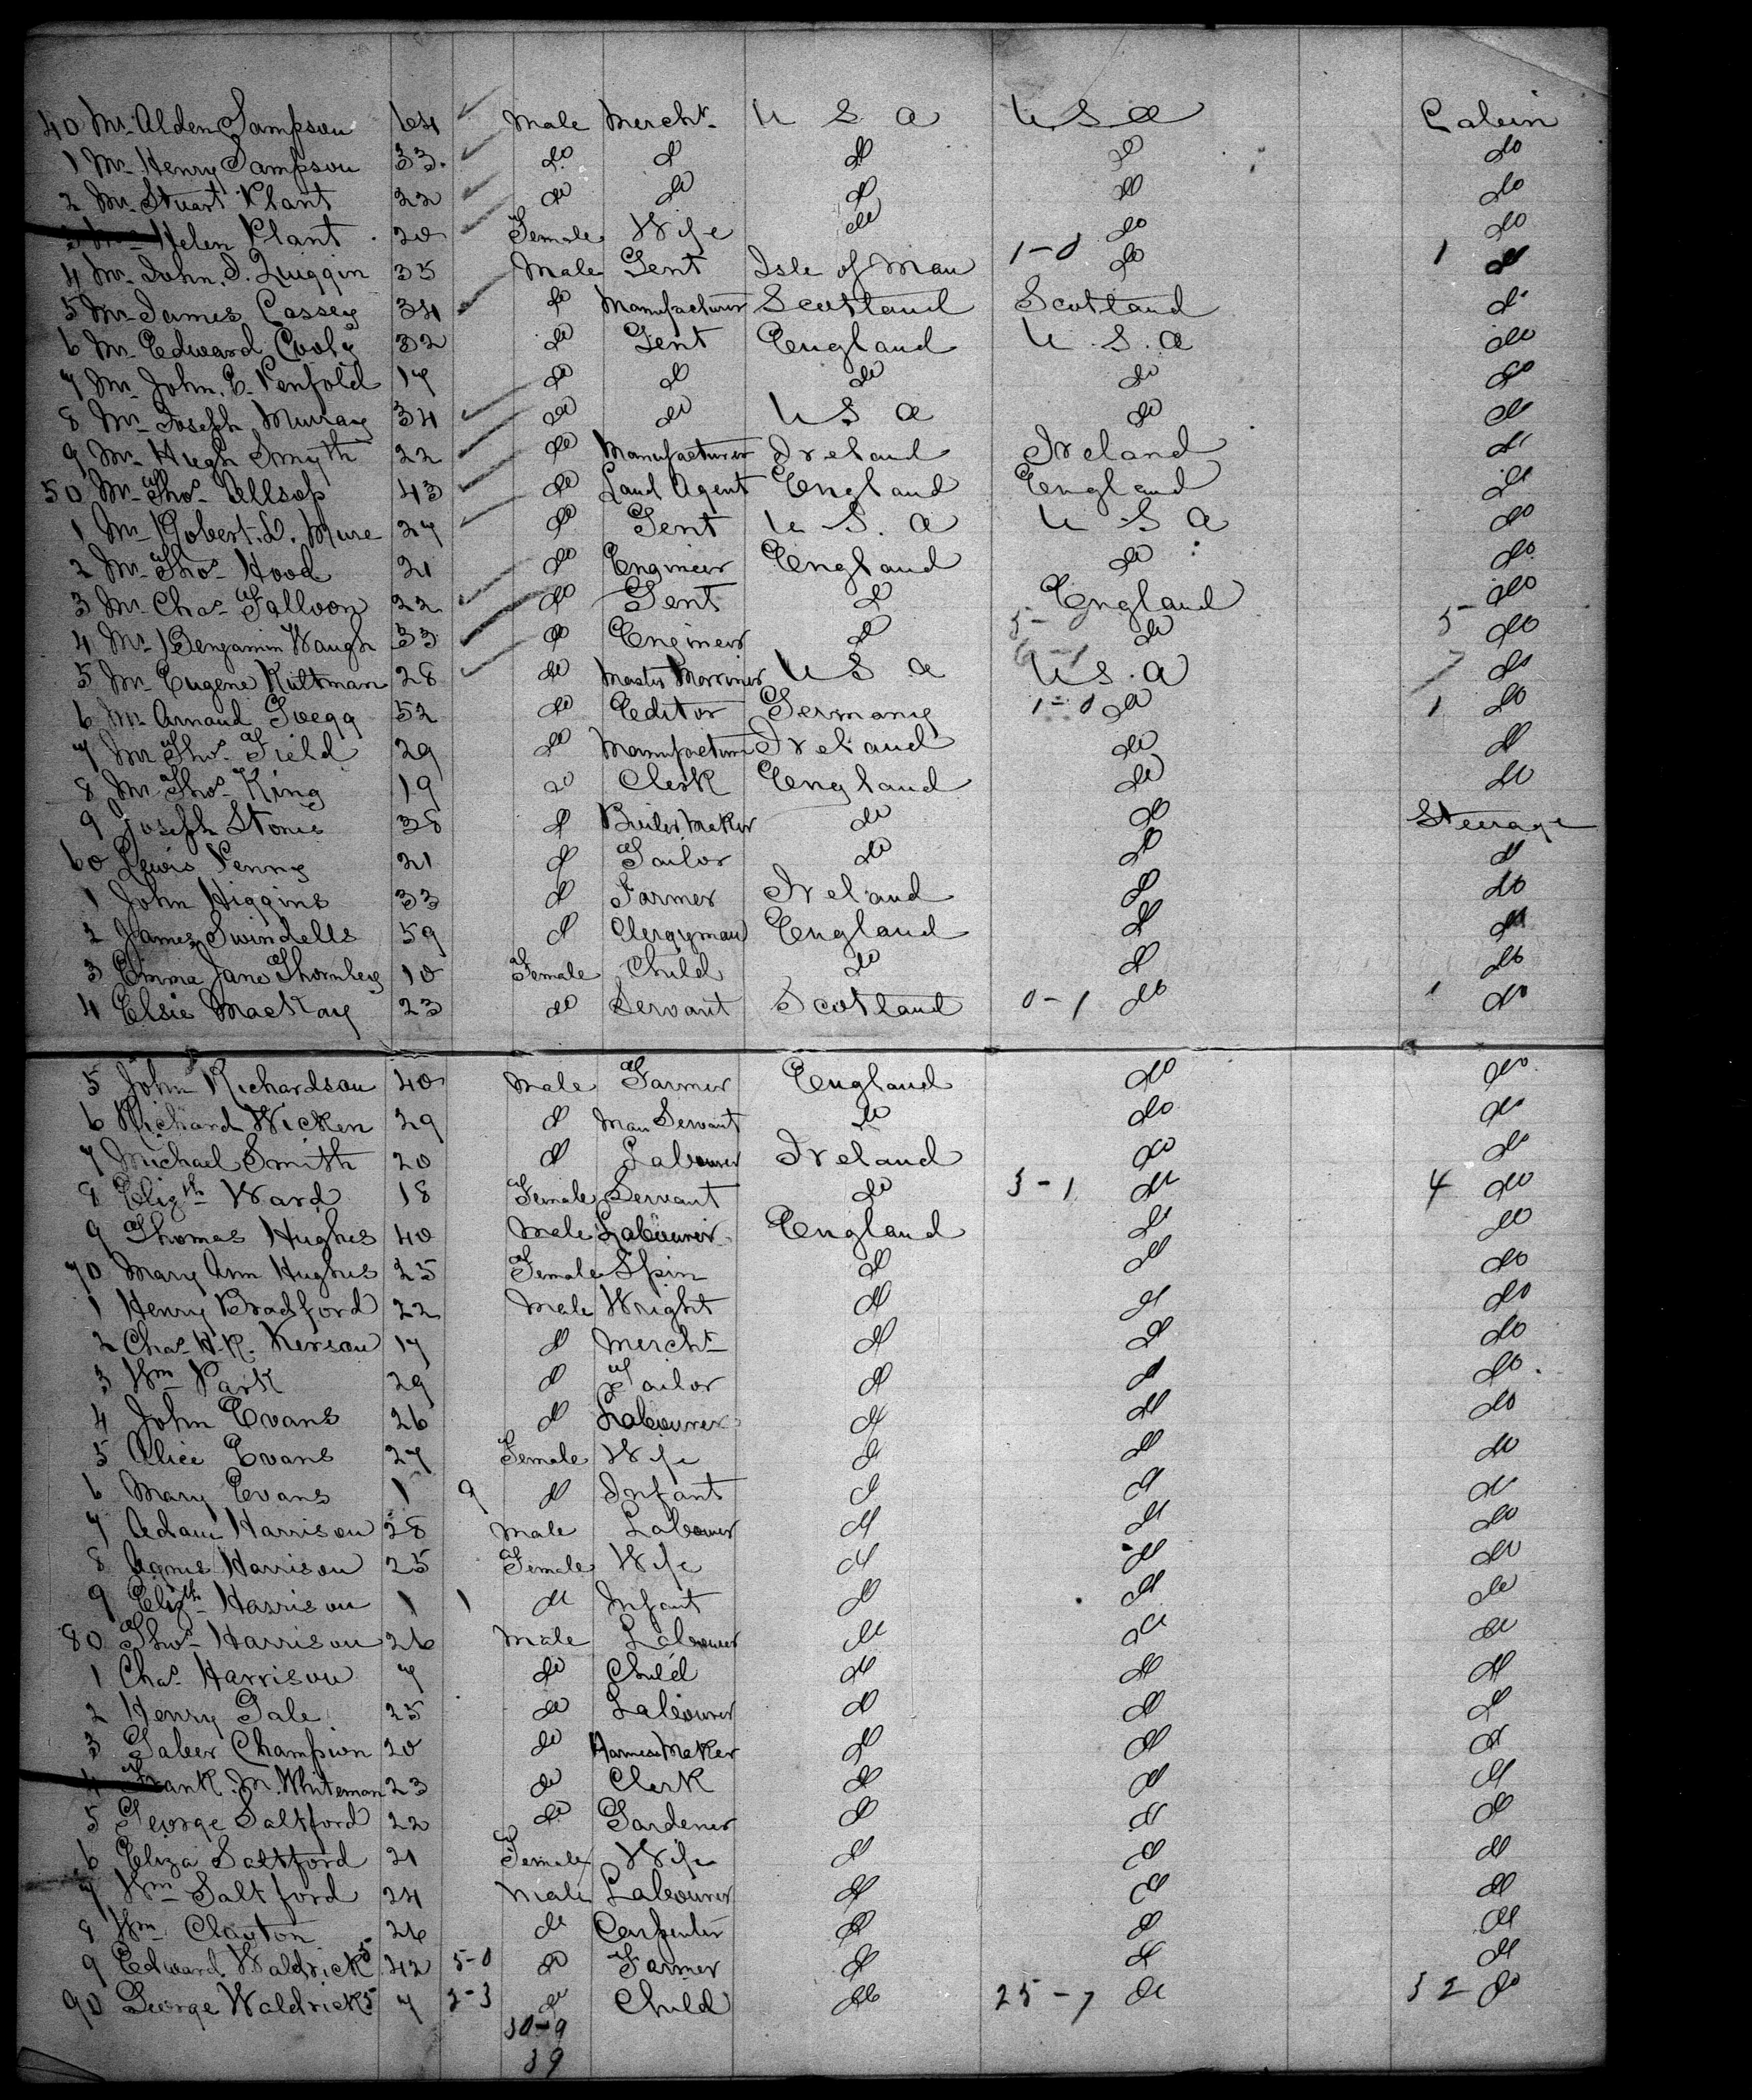 40 Mr. Alden Sampson 64 Male Mercht. U S A U S A Cabin
1 Mr. Henry Sampson 33 do do do do do
2 Mr. Stuart Plant 22 do do do do do
3 Helen Plant 20 Female Wife do do do
4 Mr. John. S. Quiggin 35 Male Gent Isle of Man 1-0 do 1 do
5 Mr. James Cassey 34 do Manufacturer Scotland Scotland do
6 Mr. Edward Cooly 32 do Gent England U. S. A do
7 Mr. John. E. Penfold 17 do do do do do
8 Mr. Joseph Murray 34 do do U S A do do
9 Mr. Hugh Smyth 22 do Manufacturer Ireland Ireland do
50 Mr. Thos. Allsop 43 do Land Agent England England do
1 Mr. Robert. D. Mure 27 do Gent U S. A U S A do
2 Mr. Thos. Hood 21 do Engineer England do do
3 Mr. Chas. Falloon 22 do Gent do England do
4 Mr. Benjamin Waugh 33 do Engineer do 5- do 5- do
5 Mr. Eugene 28 do Master Morriner U S A U S. A do
6 Mr. Arnaud 52 do Editor Germany 1-0 do 1 do
7 Mr. Thos. Field 29 do Manufacturer Ireland do do
8 Mr. Thos. King 19 do Clerk England do do
9 Joseph Stones 38 do Boiler Maker do do Steerage
60 Lewis Penny 21 do Tailor do do do
1 John Higgins 33 do Farmer Ireland do do
2 James Swindells 59 do Clergyman England do do
3 Emma Jane Thornley 10 Female Child do do do
4 Elsie MacKay 23 do Servant Scotland 0-1 do 1 do
5 John Richardson 40 Male Farmer England do do
6 Richard Wicken 29 do Man Servant do do do
7 Michael Smith 20 do Labourer Ireland do do
8 Elizth. Ward 18 Female Servant do 3-1 do 4 do
9 Thomas Hughes 40 Male Labourer England do do
70 Mary Ann Hughes 25 Female Spin do do do
1 Henry Bradford 22 Male Wright do do do
2 Chas. H. R. Kersou 17 do Mercht. do do do
3 Wm. Park 29 do Tailor do do do
4 John Evans 26 do Labourer do do do
5 Alice Evans 27 Female Wife do do do
6 Mary Evans 1 9 do Infant do do do
7 Adam Harrison 28 Male Labourer do do do
8 Agnes Harrison 25 Female Wife do do do
9 Elizth. Harrison 1 1 do Infant do do do
80 Thos. Harrison 26 Male Labourer do do do
1 Chas. Harrison 7 do Child do do do
2 Henry Gale 25 do Labourer do do do
3 Champion 20 do Harness Maker do do do
4 Frank. M. Whiteman 23 do Clerk do do do
5 George Saltford 22 do Gardener do do do
6 Eliza Saltford 21 Female Wife do do do
7 Wm. Saltford 24 Male Labourer do do do
8 Wm. Clayton 26 do Carpenter do do do
9 Edward Waldrick 5 42 5-0 do Farmer do do do
90 George Waldrick 5 7 2-3 do Child do 25-7 do 32 do
30-9
39